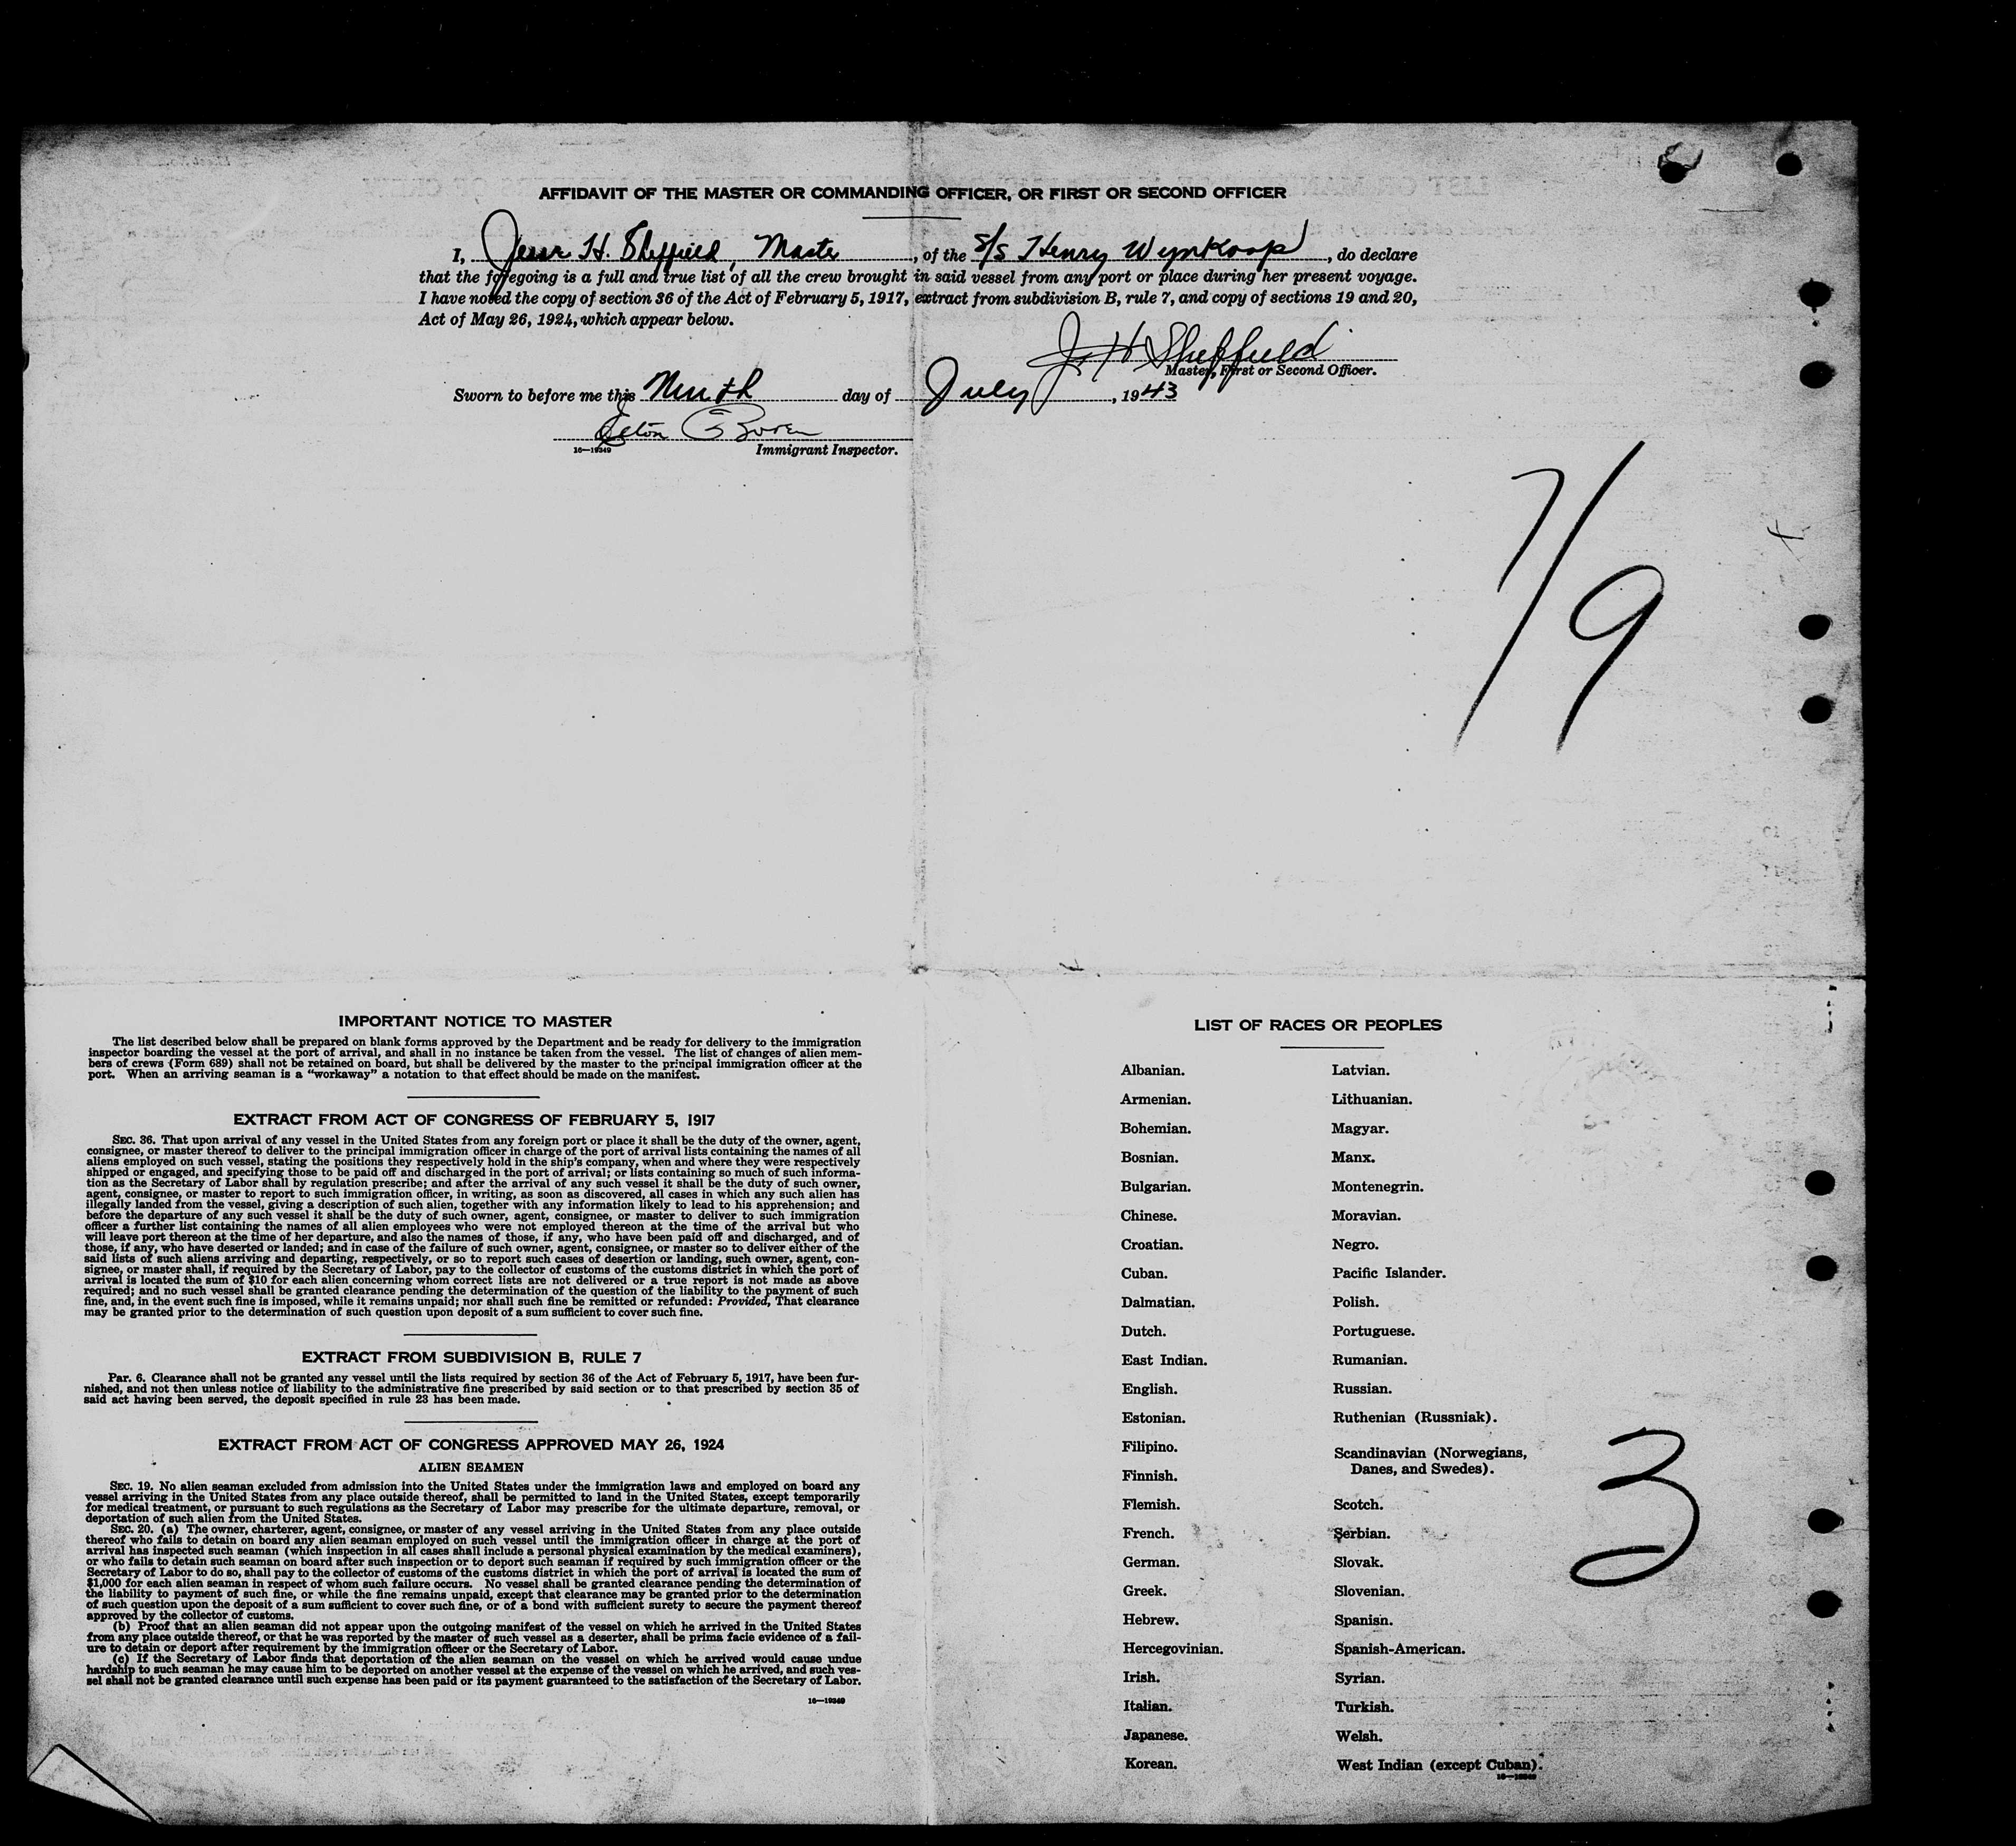 AFFIDAVIT OF THE MASTER OR COMMANDING OFFICER, OR FIRST OR SECOND OFFICER
I, Jesse H. Sheffield, Master, of the S/S Henry Wynkoop, do declare
that the foregoing is a full and true list of all the crew brought in said vessel from any port or place during her present voyage.
I have noted the copy of section 36 of the Act of February 5, 1917, extract from subdivision B, rule 7, and copy of sections 19 and 20,
Act of May 26, 1924, which appear below.
J. H. Sheffield
Master, First or Second Officer.
Sworn to before me this Ninth day of July, 1943
16—19349
Immigrant Inspector.
7/9
IMPORTANT NOTICE TO MASTER
The list described below shall be prepared on blank forms approved by the Department and be ready for delivery to the immigration
inspector boarding the vessel at the port of arrival, and shall in no instance be taken from the vessel. The list of changes of alien mem-
bers of crews (Form 689) shall not be retained on board, but shall be delivered by the master to the principal immigration officer at the
port. When an arriving seaman is a "workaway" a notation to that effect should be made on the manifest.
EXTRACT FROM ACT OF CONGRESS OF FEBRUARY 5, 1917
SEC. 36. That upon arrival of any vessel in the United States from any foreign port or place it shall be the duty of the owner, agent,
consignee, or master thereof to deliver to the principal immigration officer in charge of the port of arrival lists containing the names of all
aliens employed on such vessel, stating the positions they respectively hold in the ship's company, when and where they were respectively
shipped or engaged, and specifying those to be paid off and discharged in the port of arrival; or lists containing so much of such informa-
tion as the Secretary of Labor shall by regulation prescribe; and after the arrival of any such vessel it shall be the duty of such owner,
agent, consignee, or master to report to such immigration officer, in writing, as soon as discovered, all cases in which any such alien has
illegally landed from the vessel, giving a description of such alien, together with any information likely to lead to his apprehension; and
before the departure of any such vessel it shall be the duty of such owner, agent, consignee, or master to deliver to such immigration
officer a further list containing the names of all alien employees who were not employed thereon at the time of the arrival but who
will leave port thereon at the time of her departure, and also the names of those, if any, who have been paid off and discharged, and of
those, if any, who have deserted or landed; and in case of the failure of such owner, agent, consignee, or master so to deliver either of the
said lists of such aliens arriving and departing, respectively, or so to report such cases of desertion or landing, such owner, agent, con-
signee, or master shall, if required by the Secretary of Labor, pay to the collector of customs of the customs district in which the port of
arrival is located the sum of $10 for each alien concerning whom correct lists are not delivered or a true report is not made as above
required; and no such vessel shall be granted clearance pending the determination of the question of the liability to the payment of such
fine, and, in the event such fine is imposed, while it remains unpaid; nor shall such fine be remitted or refunded: Provided, That clearance
may be granted prior to the determination of such question upon deposit of a sum sufficient to cover such fine.
EXTRACT FROM SUBDIVISION B, RULE 7
Par. 6. Clearance shall not be granted any vessel until the lists required by section 36 of the Act of February 5, 1917, have been fur-
nished, and not then unless notice of liability to the administrative fine prescribed by said section or to that prescribed by section 35 of
said act having been served, the deposit specified in rule 23 has been made.
EXTRACT FROM ACT OF CONGRESS APPROVED MAY 26, 1924
ALIEN SEAMEN
SEC. 19. No alien seaman excluded from admission into the United States under the immigration laws and employed on board any
vessel arriving in the United States from any place outside thereof, shall be permitted to land in the United States, except temporarily
for medical treatment, or pursuant to such regulations as the Secretary of Labor may prescribe for the ultimate departure, removal, or
deportation of such alien from the United States.
SEC. 20. (a) The owner, charterer, agent, consignee, or master of any vessel arriving in the United States from any place outside
thereof who fails to detain on board any alien seaman employed on such vessel until the immigration officer in charge at the port of
arrival has inspected such seaman (which inspection in all cases shall include a personal physical examination by the medical examiners),
or who fails to detain such seaman on board after such inspection or to deport such seaman if required by such immigration officer or the
Secretary of Labor to do so, shall pay to the collector of customs of the customs district in which the port of arrival is located the sum of
$1,000 for each alien seaman in respect of whom such failure occurs. No vessel shall be granted clearance pending the determination of
the liability to payment of such fine, or while the fine remains unpaid, except that clearance may be granted prior to the determination
of such question upon the deposit of a sum sufficient to cover such fine, or of a bond with sufficient surety to secure the payment thereof
approved by the collector of customs.
(b) Proof that an alien seaman did not appear upon the outgoing manifest of the vessel on which he arrived in the United States
from any place outside thereof, or that he was reported by the master of such vessel as a deserter, shall be prima facie evidence of a fail-
ure to detain or deport after requirement by the immigration officer or the Secretary of Labor.
(c) If the Secretary of Labor finds that deportation of the alien seaman on the vessel on which he arrived would cause undue
hardship to such seaman he may cause him to be deported on another vessel at the expense of the vessel on which he arrived, and such ves-
sel shall not be granted clearance until such expense has been paid or its payment guaranteed to the satisfaction of the Secretary of Labor.
16—19349
LIST OF RACES OR PEOPLES
Albanian.
Armenian.
Bohemian.
Bosnian.
Bulgarian.
Chinese.
Croatian.
Cuban.
Dalmatian.
Dutch.
East Indian.
English.
Estonian.
Filipino.
Finnish.
Flemish.
French.
German.
Greek.
Hebrew.
Hercegovinian.
Irish.
Italian.
Japanese.
Korean.
Latvian.
Lithuanian.
Magyar.
Manx.
Montenegrin.
Moravian.
Negro.
Pacific Islander.
Polish.
Portuguese.
Rumanian.
Russian.
Ruthenian (Russniak).
Scandinavian (Norwegians,
Danes, and Swedes).
Scotch.
Serbian.
Slovak.
Slovenian.
Spanish.
Spanish-American.
Syrian.
Turkish.
Welsh.
West Indian (except Cuban).
16—19349
3